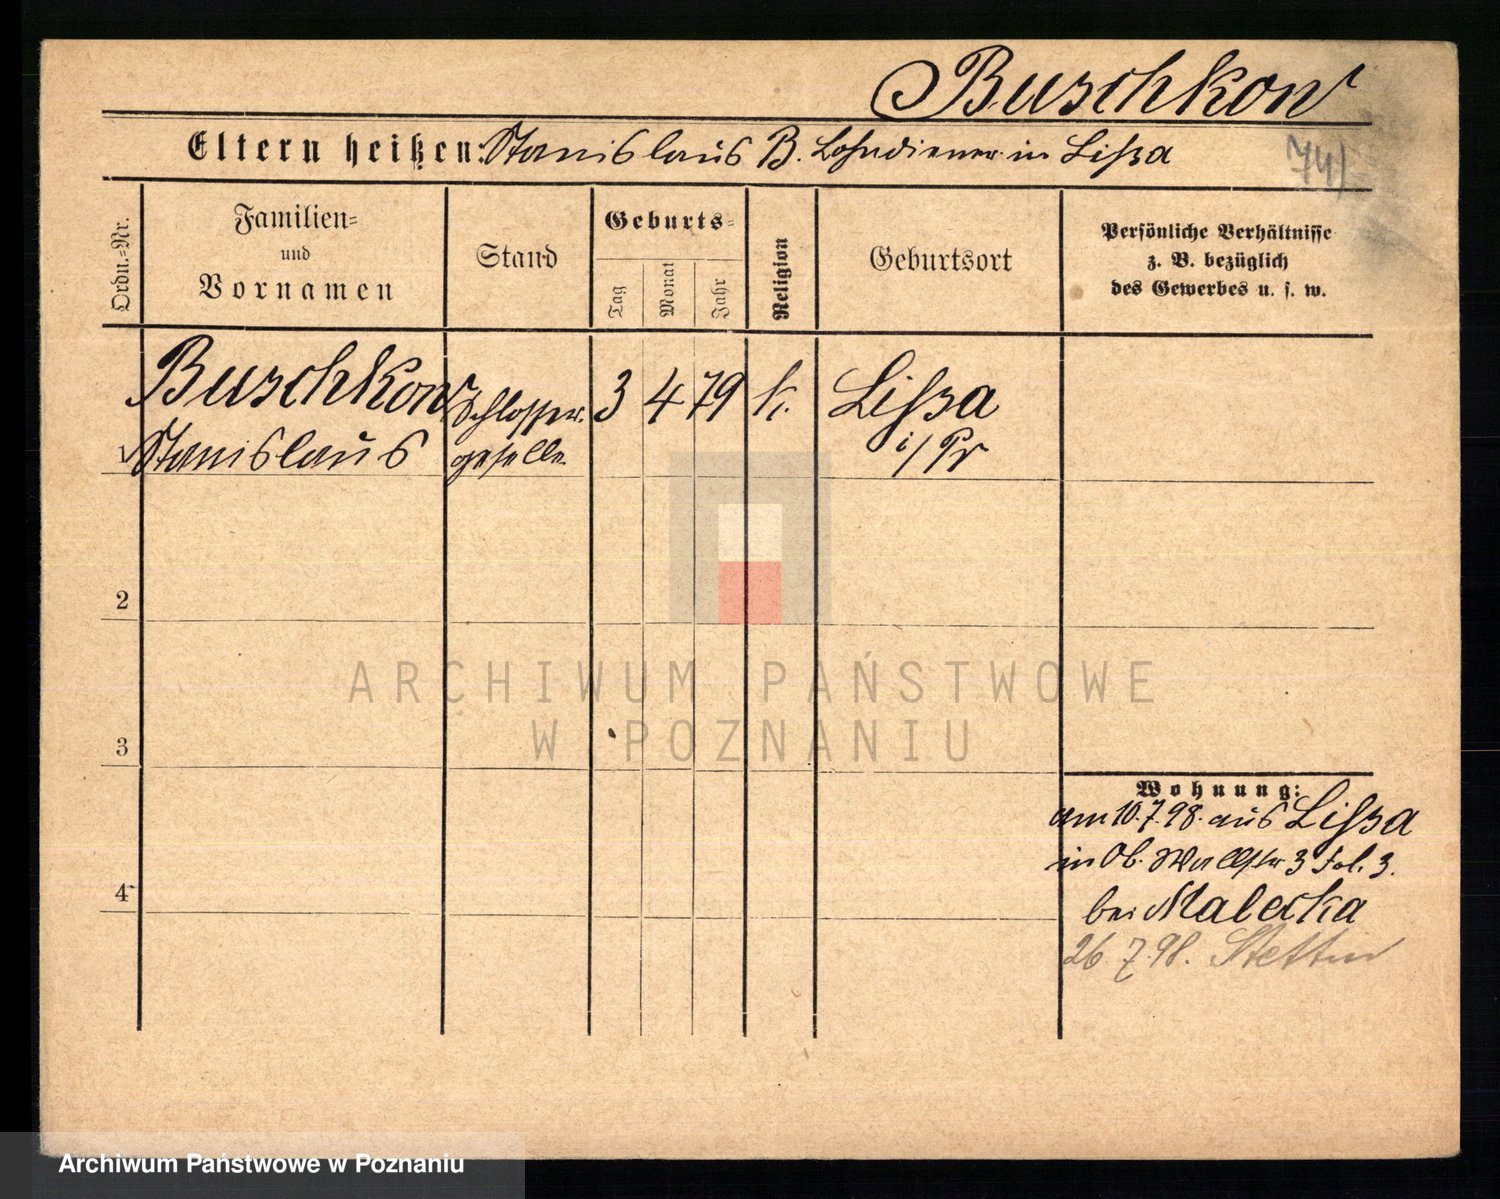 Buschkow
Eltern heißen: Stanislaus B. Lohndiener in Lissa
741
Ordn.-Nr.
Familien-
und
Vornamen
Stand
Geburts-
Tag
Monat
Jahr
Religion
Geburtsort
Persönliche Verhältnisse
z. B. bezüglich
des Gewerbes u. s. w.
Buschkow Schlosser- 3 4 79 k. Lissa
1 Stanislaus geselle i/Pr
2
3
4
ARCHIWUM PAŃSTWOWE
W POZNANIU
Wohnung:
am 10.7.98. aus Lissa
in Ob. Wallstr 3 Fol. 3.
bei Malecka
26.7.98. Stettin
Archiwum Państwowe w Poznaniu